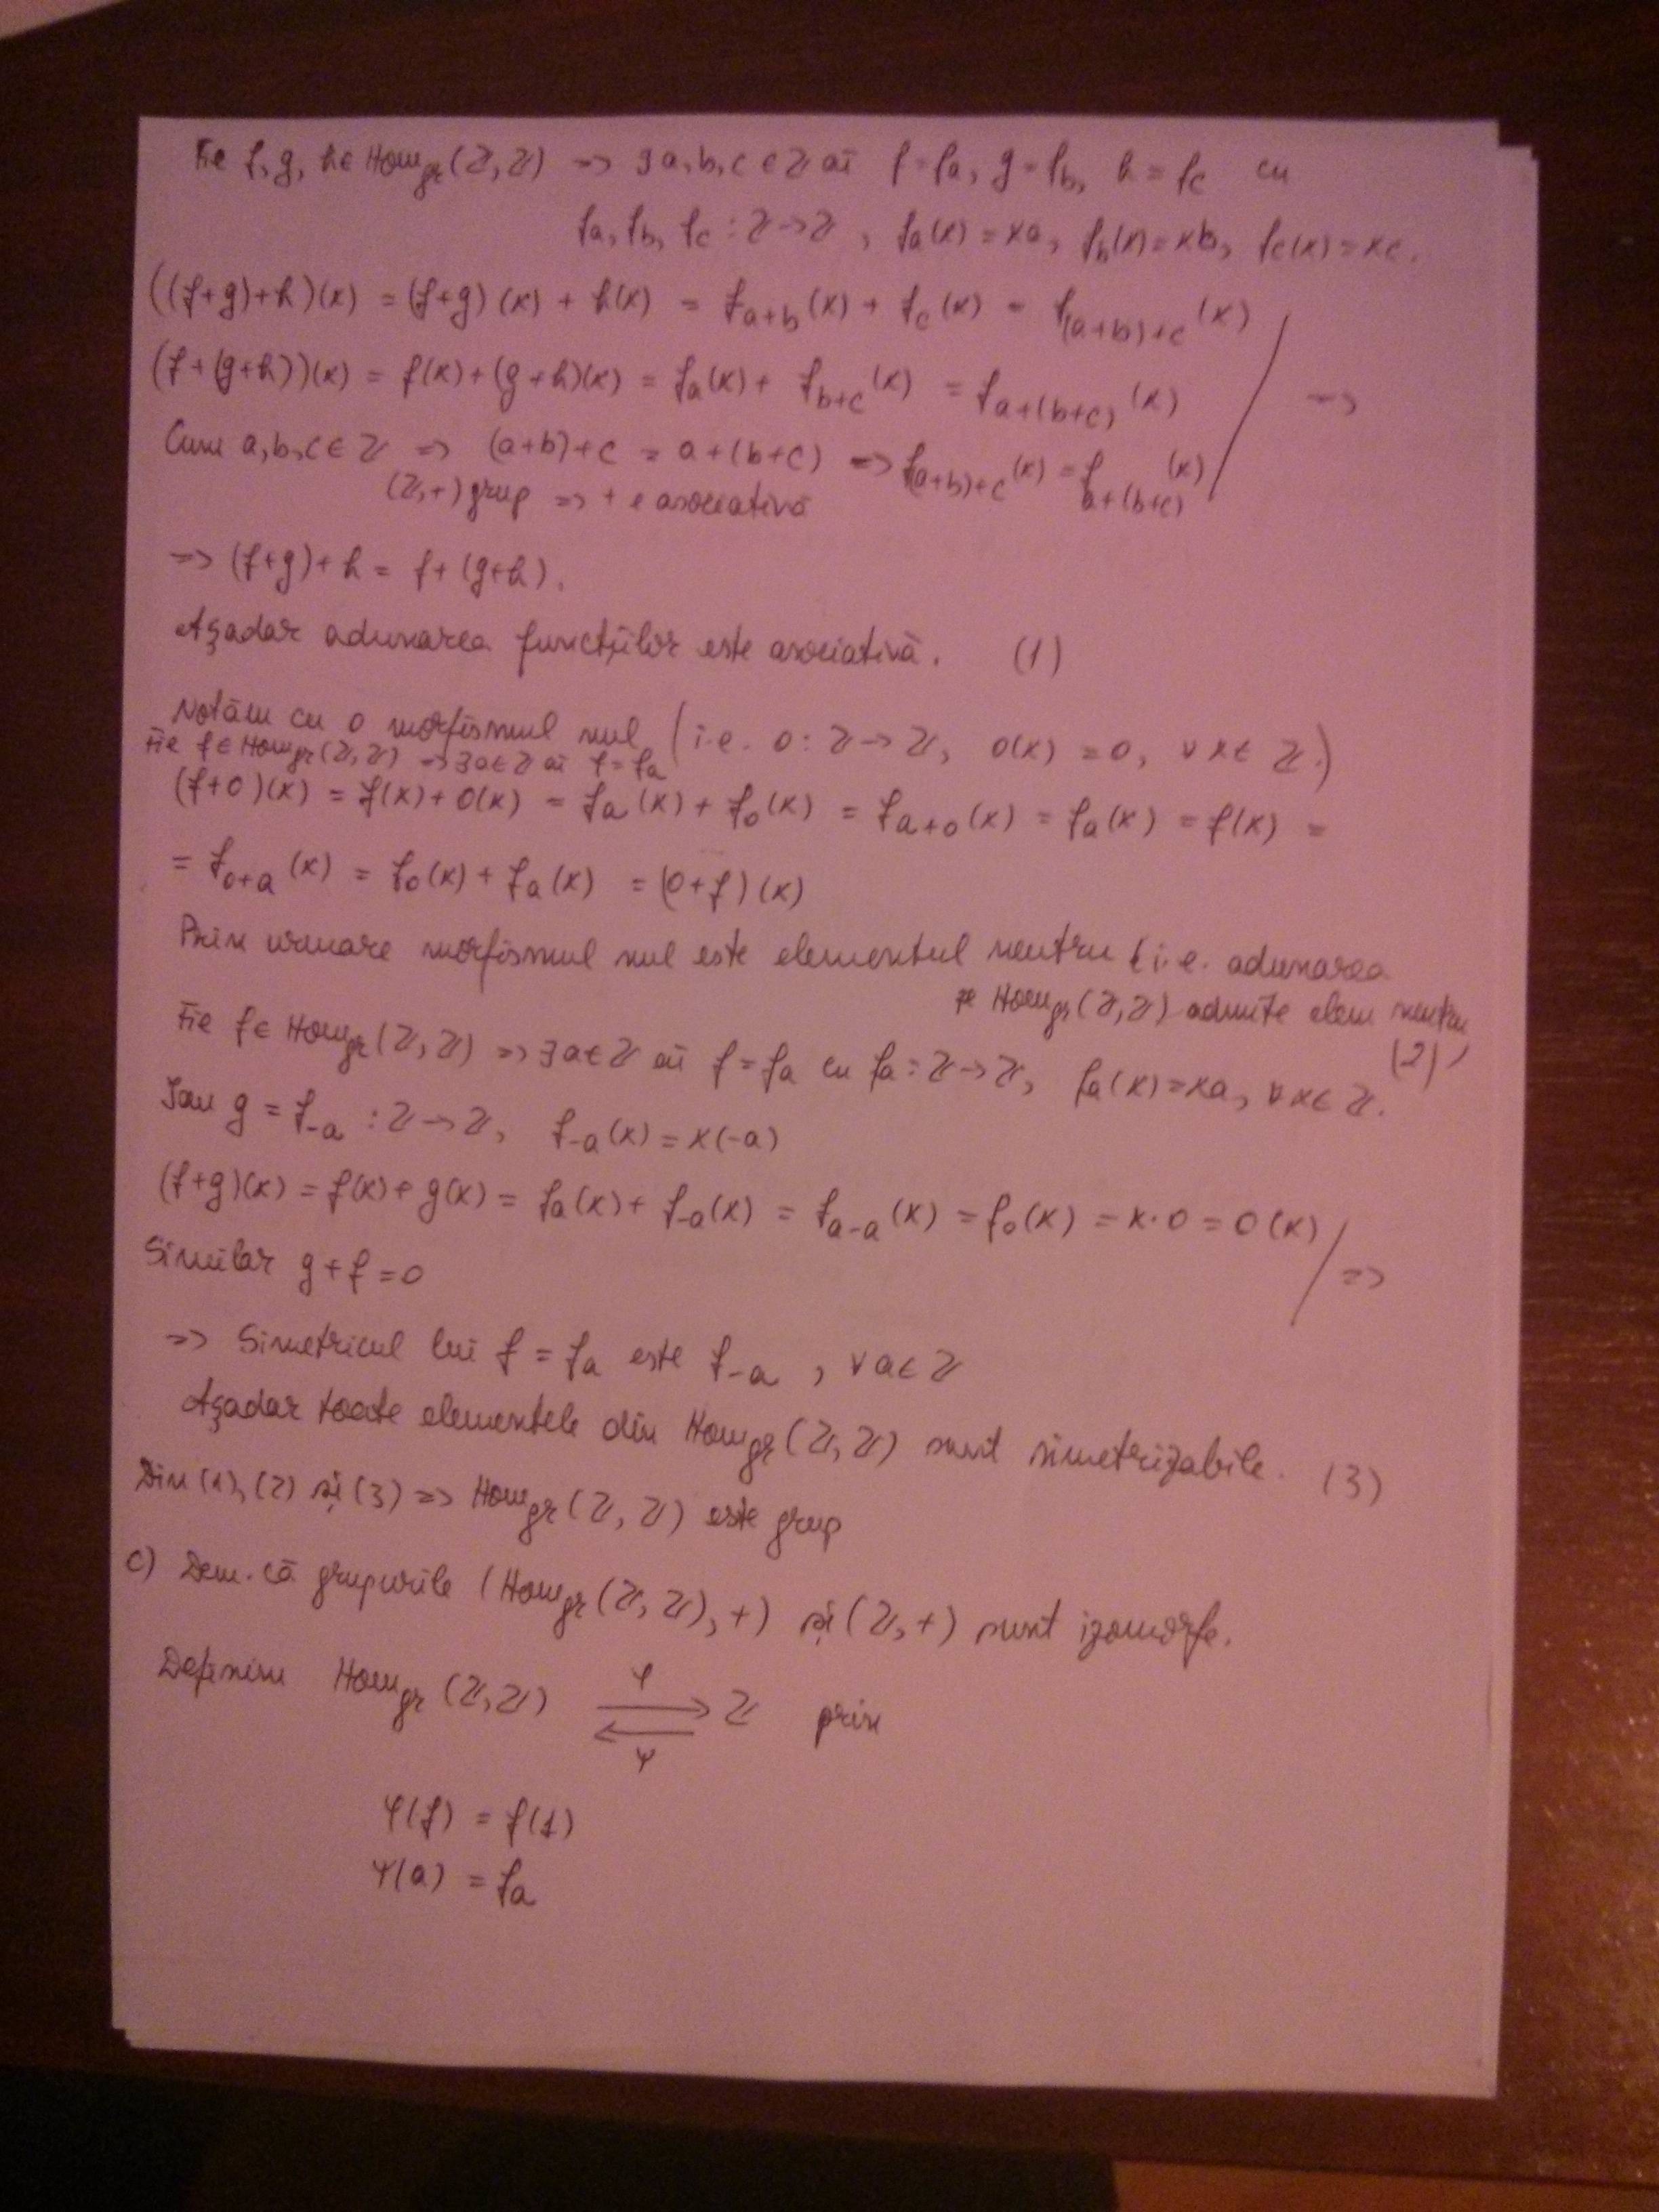 Fie f, g, h ∈ Hom_gr(ℤ, ℤ) => ∃ a, b, c ∈ ℤ aî f = f_a, g = f_b, h = f_c cu
f_a, f_b, f_c : ℤ -> ℤ, f_a(x) = xa, f_b(x) = xb, f_c(x) = xc.
((f+g)+h)(x) = (f+g)(x) + h(x) = f_{a+b}(x) + f_c(x) = f_{(a+b)+c}(x)
(f+(g+h))(x) = f(x)+(g+h)(x) = f_a(x) + f_{b+c}(x) = f_{a+(b+c)}(x) =>
Cum a, b, c ∈ ℤ => (a+b)+c = a+(b+c) => f_{(a+b)+c}(x) = f_{a+(b+c)}(x)
(ℤ,+) grup => + e asociativă
=> (f+g)+h = f+(g+h).
Așadar adunarea funcțiilor este asociativă. (1)
Notăm cu 0 morfismul nul (i.e. 0 : ℤ -> ℤ, 0(x) = 0, ∀ x ∈ ℤ.)
Fie f ∈ Hom_gr(ℤ, ℤ) => ∃ a ∈ ℤ aî f = f_a
(f+0)(x) = f(x) + 0(x) = f_a(x) + f_0(x) = f_{a+0}(x) = f_a(x) = f(x) =
= f_{0+a}(x) = f_0(x) + f_a(x) = (0+f)(x)
Prin urmare morfismul nul este elementul neutru (i.e. adunarea
pe Hom_gr(ℤ, ℤ) admite elem neutru
(2))
Fie f ∈ Hom_gr(ℤ, ℤ) => ∃ a ∈ ℤ aî f = f_a cu f_a : ℤ -> ℤ, f_a(x) = xa, ∀ x ∈ ℤ.
Iau g = f_{-a} : ℤ -> ℤ, f_{-a}(x) = x(-a)
(f+g)(x) = f(x) + g(x) = f_a(x) + f_{-a}(x) = f_{a-a}(x) = f_0(x) = x·0 = 0(x)
Similar g + f = 0 =>
=> Simetricul lui f = f_a este f_{-a}, ∀ a ∈ ℤ
Așadar toate elementele din Hom_gr(ℤ, ℤ) sunt simetrizabile. (3)
Din (1), (2) și (3) => Hom_gr(ℤ, ℤ) este grup
c) Dem. că grupurile (Hom_gr(ℤ, ℤ), +) și (ℤ, +) sunt izomorfe.
Definim Hom_gr(ℤ, ℤ) φ ⇄ ψ ℤ prin
φ(f) = f(1)
ψ(a) = f_a